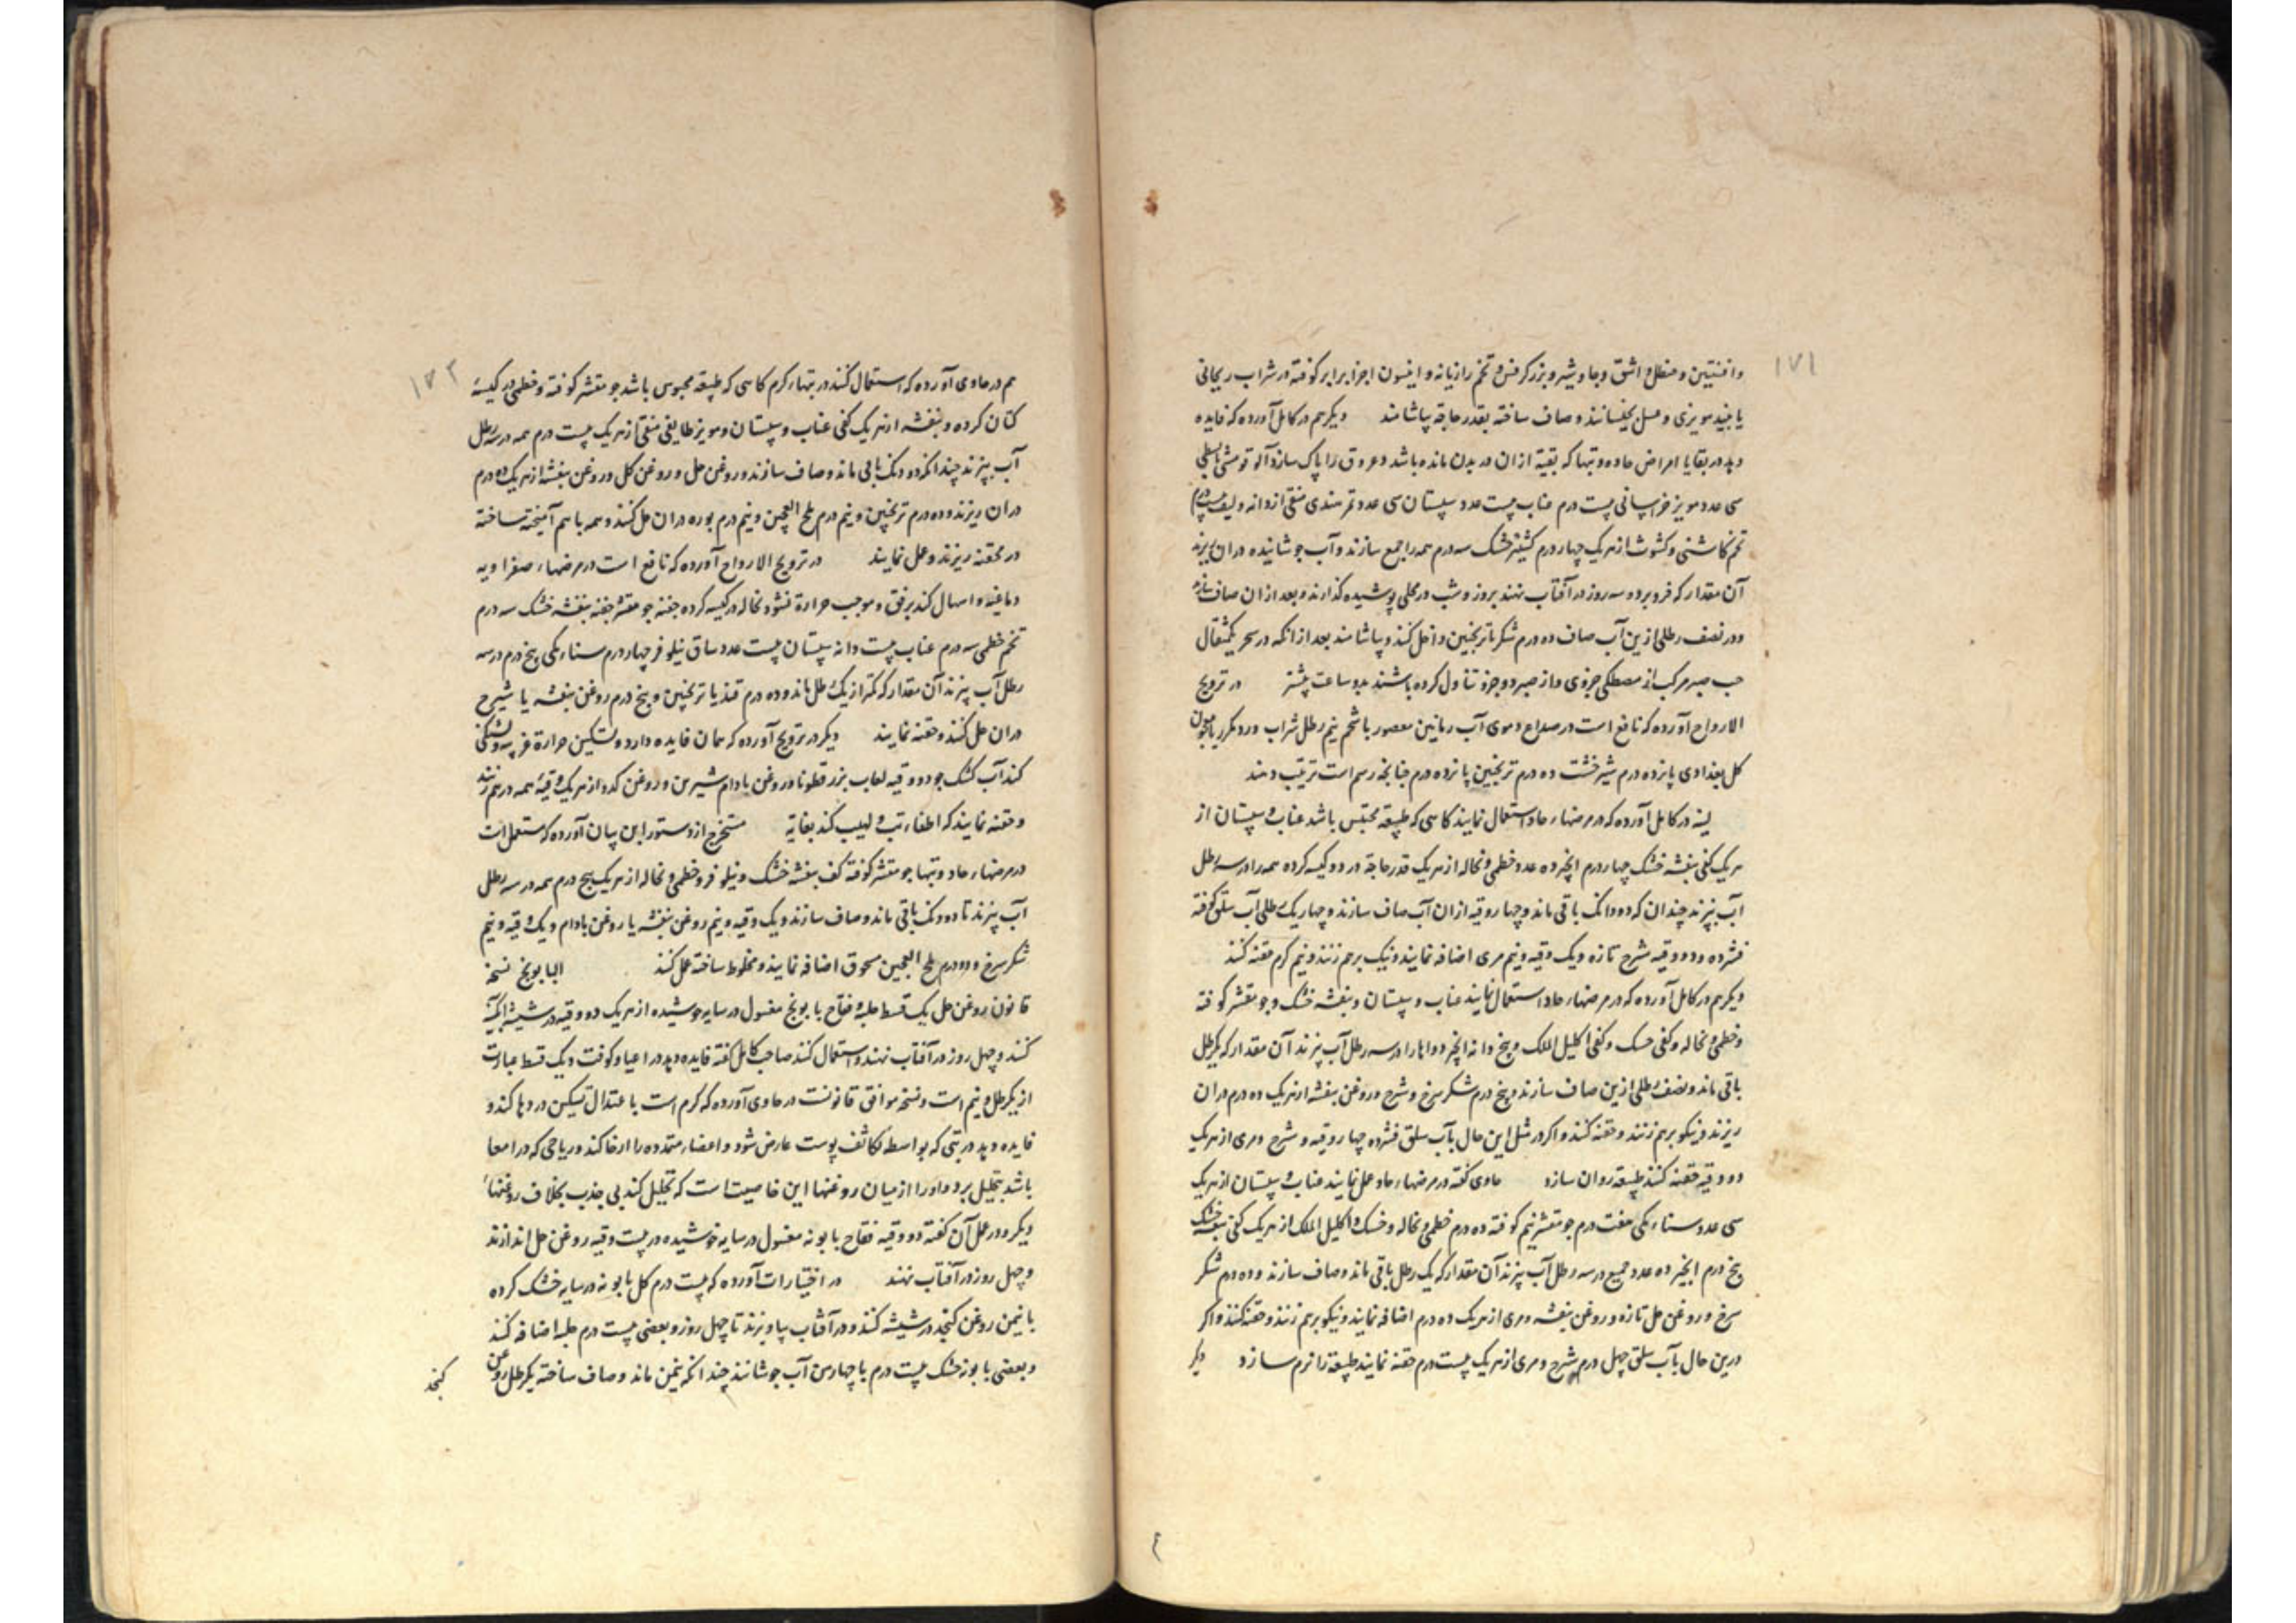 ۱۷۱
وافنتین و حنظل و اشق و جاوشیر و بزر کرفس و تخم رازیانه و انیسون اجزا برابر کوفته در شراب ریحانی
یا نبید مویزی و عسل بخیسانند و صاف ساخته بقدر حاجة بیاشامند دیگر هم در کامل آورده که فایده
دهد در بقایا امراض حاده و تبها که بقیة از ان در بدن مانده باشد و عروق را پاک سازد آلو قومشی
سی عدد مویز خراسانی بیست درم عناب بیست عدد سپستان سی عدد تمر هندی منقی از دانه و لیف بیست درم
تخم کاشنی و کشوث از هر یک چهار درم کشنیز خشک سه درم همه را جمع سازند و آب جوشانیده در ان ریزند
آن مقدار که فرو برد و سه روز در آفتاب نهند بروز و شب در محلی پوشیده گذارند و بعد از ان صاف سازند
و در نصف رطلی ازین آب صاف ده درم شکر یا ترنجبین داخل کنند و بیاشامند بعد از انکه در سحر یکمثقال
حب صبر مرکب از مصطکی جزوی و از صبر دو جزو تناول کرده باشند بدو ساعت پیشتر در ترویح
الارواح آورده که نافع است در صداع دموی آب رمانین معصور با شحم نیم رطل شراب ورد مکرر یا معجون
کل بغدادی پانزده درم شیرخشت ده درم ترنجبین پانزده درم چنانچه رسم است ترتیب دهند
لینه در کامل آورده که در مرضهاء حاد استعمال نمایند کاسی که طبیعة محتبس باشد عناب و سپستان از
هر یک کفی بنفشه خشک چهار درم انجیر ده عدد خطمی و نخاله از هر یک قدر حاجة در دو کیسه کرده همه را در سه رطل
آب بپزند چندان که دو دانک باقی ماند و چهار وقیه از ان آب صاف سازند و چهار یک رطلی آب سلق کوفته
فشرده و دو وقیه شیرج تازه و یک وقیه و نیم مری اضافه نمایند و نیک برهم زنند و نیم گرم حقنه کنند
دیگر هم در کامل آورده که در مرضهاء حاد استعمال نمایند عناب و سپستان و بنفشه خشک و جو مقشر کوفته
و خطمی و نخاله و کفی حسک و کفی اکلیل الملک و پنج دانه انجیر دواها را در سه رطل آب پزند آن مقدار که یکرطل
باقی ماند و نصف رطلی ازین صاف سازند و پنج درم شکر سرخ و شیرج و روغن بنفشه از هر یک ده درم در ان
ریزند و نیکو برهم زنند و حقنه کنند و اگر در مثل این حال بآب سلق فشرده چهار وقیه و شیرج و مری از هر یک
دو وقیه حقنه کنند طبیعة روان سازد حاوی گفته در مرضهاء حاد عمل نمایند عناب و سپستان از هر یک
سی عدد سناء مکی هفت درم جو مقشر نیم کوفته ده درم خطمی و نخاله و خسک و اکلیل الملک از هر یک کفی بنفشه خشک
پنج درم انجیر ده عدد جمیع در سه رطل آب پزند آن مقدار که یک رطل باقی ماند و صاف سازند و ده درم شکر
سرخ و روغن حل تازه و روغن بنفشه و مری از هر یک ده درم اضافه نمایند و نیکو برهم زنند و حقنه کنند و اگر
درین حال بآب سلق چهل درم شیرج و مری از هر یک بیست درم حقنه نمایند طبیعة را نرم سازد دیگر
۱۷۲
هم در حاوی آورده که استعمال کنند در تبهاء گرم کاسی که طبیعة محبوس باشد جو مقشر کوفته و خطمی در کیسهٔ
کتان کرده و بنفشه از هر یک کفی عناب و سپستان و مویز طایفی منقی از هر یک بیست درم همه در سه رطل
آب بپزند چندانکه دو دنک باقی ماند و صاف سازند و روغن حل و روغن کل و روغن بنفشه از هر یک ده درم
در ان ریزند و ده درم ترنجبین و نیم درم ملح العجین و نیم درم بوره در ان حل کنند و همه باهم آمیخته ساخته
در محقنه ریزند و عمل نمایند در ترویح الارواح آورده که نافع است در مرضهاء صفراویه
دماغیه و اسهال کند برفق و موجب حرارة نشود نخاله در کیسه کرده حفنه جو مقشر حفنه بنفشه خشک سه درم
تخم خطمی سه درم عناب بیست دانه سپستان بیست عدد ساق نیلوفر چهار درم سناء مکی پنج درم در سه
رطل آب پزند آن مقدار که کمتر از یک رطل ماند و ده درم قند یا ترنجبین و پنج درم روغن بنفشه یا شیرج
در ان حل کنند و حقنه نمایند دیگر در ترویح آورده که همان فایده دارد و تسکین حرارة غریبه و تشنگی
کند آب کشک جو دو وقیه لعاب بزر قطونا و روغن بادام شیرین و روغن کدو از هر یک وقیهٔ همه در هم زنند
و حقنه نمایند که اطفاء تب و لهیب کند بغایة مستخرج از دستور ابن بیان آورده که مستعمل است
در مرضهاء حاد و تبها جو مقشر کوفته کف بنفشه خشک و نیلوفر و خطمی و نخاله از هر یک پنج درم همه در سه رطل
آب پزند تا دو دنک باقی ماند و صاف سازند و یک وقیه و نیم روغن بنفشه یا روغن بادام و یک وقیه و نیم
شکر سرخ و دو درم ملح العجین مسحوق اضافه نمایند و مخلوط ساخته عمل کنند البابونج نسخه
قانون روغن حل یک قسط حلبه و فقاح بابونج مغسول در سایه خوشیده از هر یک دو وقیه در شیشه آبگینه
کنند و چهل روز در آفتاب نهند و استعمال کنند صاحب کامل گفته فایده دهد در اعیا و کوفت و یک قسط عبارت
از یکرطل و نیم است و نسخه موافق قانونست در حاوی آورده که گرم است باعتدال تسکین دردها کند و
فایده دهد در تبی که بواسطه تکاثف پوست عارض شود و اعضاء متمدده را ارخا کند و ریاحی که در امعا
باشد بتحلیل برد و او را از میان روغنها این خاصیت است که تحلیل کند بی جذب بخلاف روغنهاء
دیگر و در عمل آن گفته دو وقیه فقاح بابونه مغسول در سایه خوشیده در بیست وقیه روغن حل اندازند
و چهل روز در آفتاب نهند در اختیارات آورده که بیست درم کل بابونه در سایه خشک کرده
با نیمن روغن کنجد در شیشه کنند و در آفتاب بیاویزند تا چهل روز و بعضی بیست درم حلبه اضافه کنند
و بعضی بابونه خشک بیست درم با چهار من آب جوشانند چندانکه نیمن ماند و صاف ساخته یکرطل روغن
کنجد